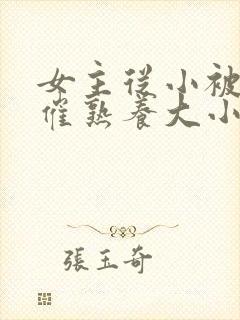 女主從小被
催熟養大小
張玉奇